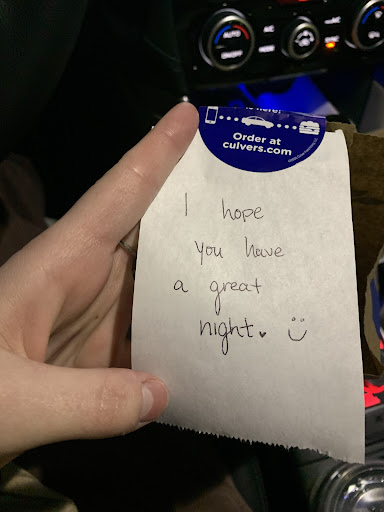 AUTO
A/C
Order at
culvers.com
I hope
you have
a great
night. :)